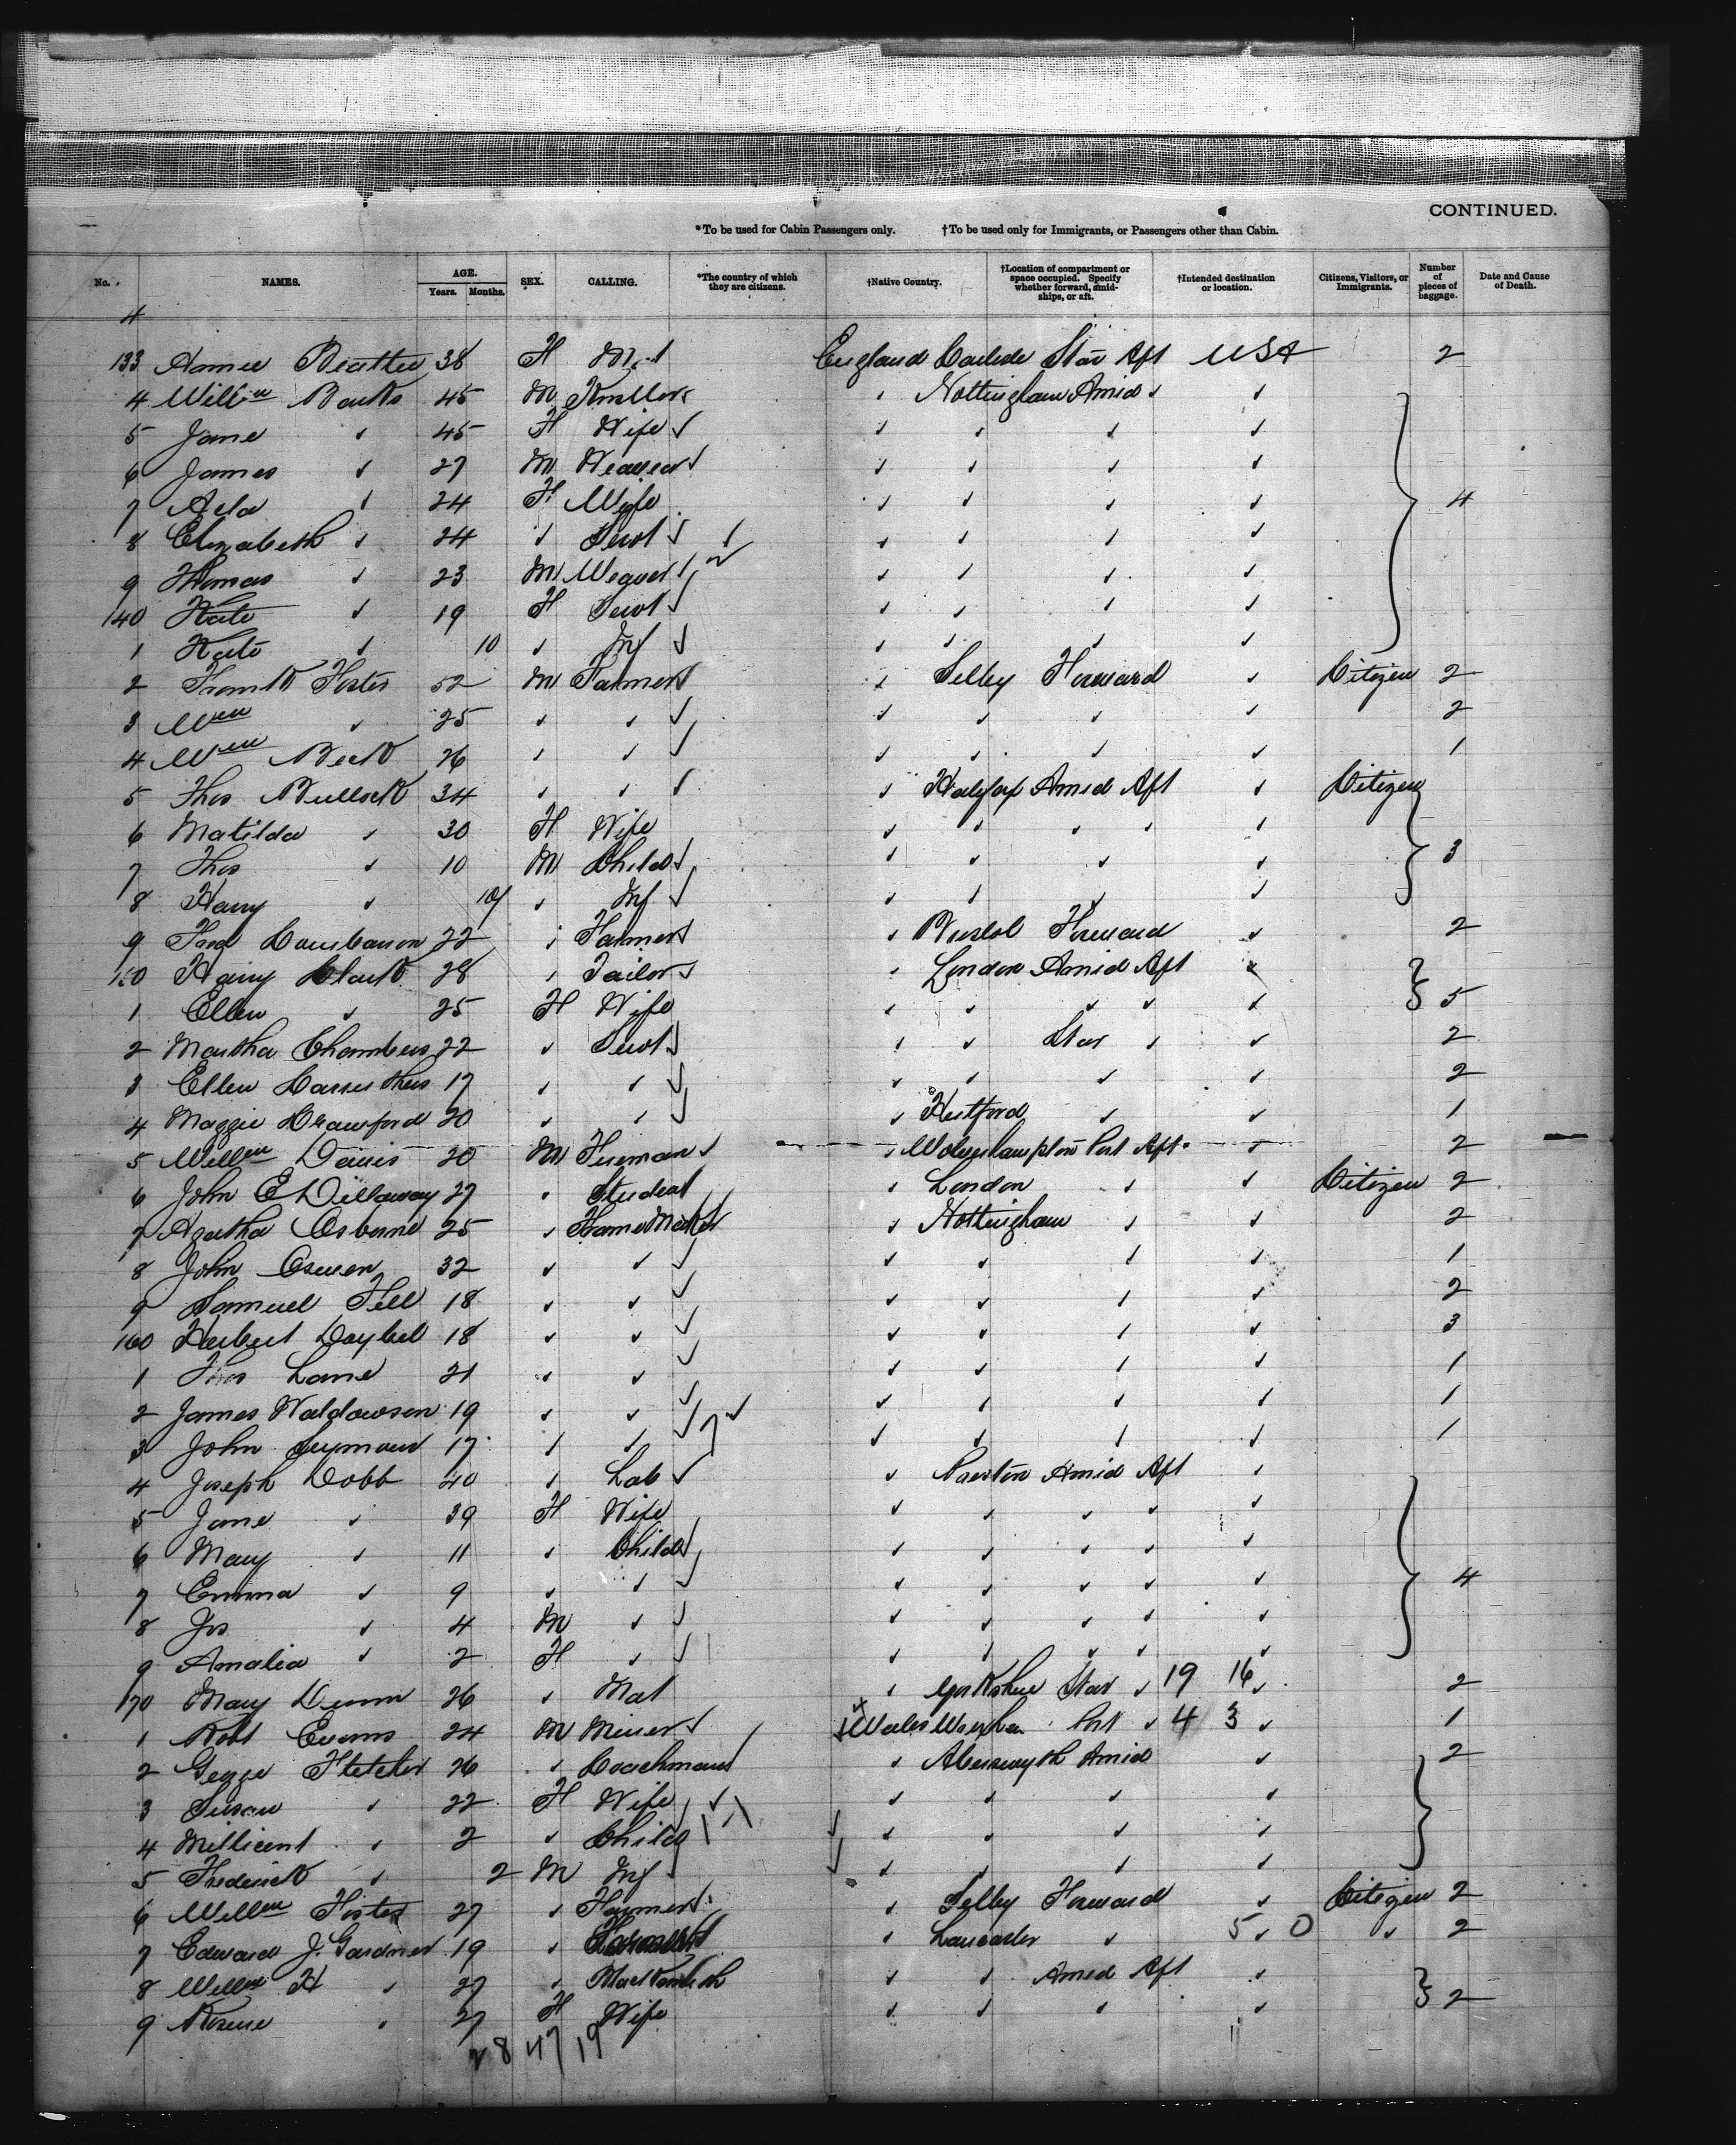 CONTINUED.
*To be used for Cabin Passengers only. †To be used only for Immigrants, or Passengers other than Cabin.
No. NAMES. AGE. Years. Months. SEX. CALLING. *The country of which they are citizens. †Native Country. †Location of compartment or space occupied. Specify whether forward, amidships, or aft. †Intended destination or location. Citizens, Visitors, or Immigrants. Number of pieces of baggage. Date and Cause of Death.
4
133 Beattie 38 F England Star Aft USA 2
4 Willm Banks 45 M ✓ Nottingham Amid ✓ ✓
5 Jane ✓ 45 F Wife ✓ ✓ ✓ ✓ ✓
6 James ✓ 27 M Weaver ✓ ✓ ✓ ✓ ✓
7 Ada ✓ 24 F Wife ✓ ✓ ✓ ✓ 4
8 Elizabeth ✓ 24 ✓ Servt ✓ ✓ ✓ ✓ ✓
9 Thomas ✓ 23 M Weaver ✓ ✓ ✓ ✓ ✓
140 Kate ✓ 19 F Servt ✓ ✓ ✓ ✓ ✓
1 Kate ✓ 10 ✓ Inf ✓ ✓ ✓ ✓ ✓
2 Frank Foster 52 M Farmer ✓ ✓ Selby Forward ✓ Citizen 2
3 Wm ✓ 25 ✓ ✓ ✓ ✓ ✓ ✓ ✓ 2
4 Wm Beck 26 ✓ ✓ ✓ ✓ ✓ ✓ ✓ 1
5 Thos Bullock 34 ✓ ✓ ✓ ✓ Halifax Amid Aft ✓ Citizen
6 Matilda ✓ 30 F Wife ✓ ✓ ✓ ✓ ✓
7 Thos ✓ 10 M Child ✓ ✓ ✓ ✓ ✓ 3
8 Harry ✓ 10 ✓ Inf ✓ ✓ ✓ ✓ ✓
9 22 ✓ Farmer ✓ ✓ Bristol Forward ✓ 2
150 Harry Clark 28 ✓ Tailor ✓ ✓ London Amid Aft ✓
1 Ellen ✓ 25 F Wife ✓ ✓ ✓ ✓ ✓ 5
2 Martha Chambers 22 ✓ Servt ✓ ✓ ✓ Star ✓ ✓ 2
3 Ellen Carruthers 17 ✓ ✓ ✓ ✓ ✓ ✓ ✓ 2
4 Maggie Crawford 20 ✓ ✓ ✓ ✓ ✓ ✓ 1
5 Willm Davis 20 M Fireman ✓ ✓ Wolverhampton Port Aft ✓ 2
6 John E Dillaway 27 ✓ Student ✓ London ✓ ✓ Citizen 2
7 Osborne 25 ✓ Frame Maker ✓ Nottingham ✓ ✓ 2
8 John 32 ✓ ✓ ✓ ✓ ✓ ✓ ✓ 1
9 Samuel 18 ✓ ✓ ✓ ✓ ✓ ✓ ✓ 2
160 Herbert Daybel 18 ✓ ✓ ✓ ✓ ✓ ✓ ✓ 3
1 Thos Lane 21 ✓ ✓ ✓ ✓ ✓ ✓ ✓ 1
2 James 19 ✓ ✓ ✓ ✓ ✓ ✓ ✓ 1
3 John Seymour 17 ✓ ✓ ✓ ✓ ✓ ✓ ✓ 1
4 Joseph Dobb 40 ✓ Lab ✓ ✓ Preston Amid Aft ✓
5 Jane ✓ 39 F Wife ✓ ✓ ✓ ✓ ✓
6 Mary ✓ 11 ✓ Child ✓ ✓ ✓ ✓ ✓ ✓
7 Emma ✓ 9 ✓ ✓ ✓ ✓ ✓ ✓ ✓ ✓ 4
8 Jos ✓ 4 M ✓ ✓ ✓ ✓ ✓ ✓ ✓
9 Amalia ✓ 2 F ✓ ✓ ✓ ✓ ✓ ✓ ✓
170 Mary Dunn 26 ✓ Mat ✓ Yorkshire Star ✓ 19 16 ✓ 2
1 Robt Evans 24 M Miner ✓ Wales Port ✓ 4 3 ✓ 1
2 George Fletcher 26 ✓ Coachman ✓ Amid ✓ 2
3 Susan ✓ 22 F Wife ✓ ✓ ✓ ✓ ✓
4 Millicent ✓ 2 ✓ Child ✓ ✓ ✓ ✓
5 Frederick ✓ 2 M Inf ✓ ✓ ✓ ✓ ✓
6 Willm Foster 27 ✓ Farmer ✓ Selby Forward ✓ Citizen 2
7 Edward J. Gardner 19 ✓ ✓ Lancaster ✓ 5 ✓ 0 ✓ 2
8 Willm H ✓ 27 ✓ ✓ ✓ Amid Aft ✓
9 ✓ 27 F Wife ✓ ✓ ✓ ✓ 2
28 47 19